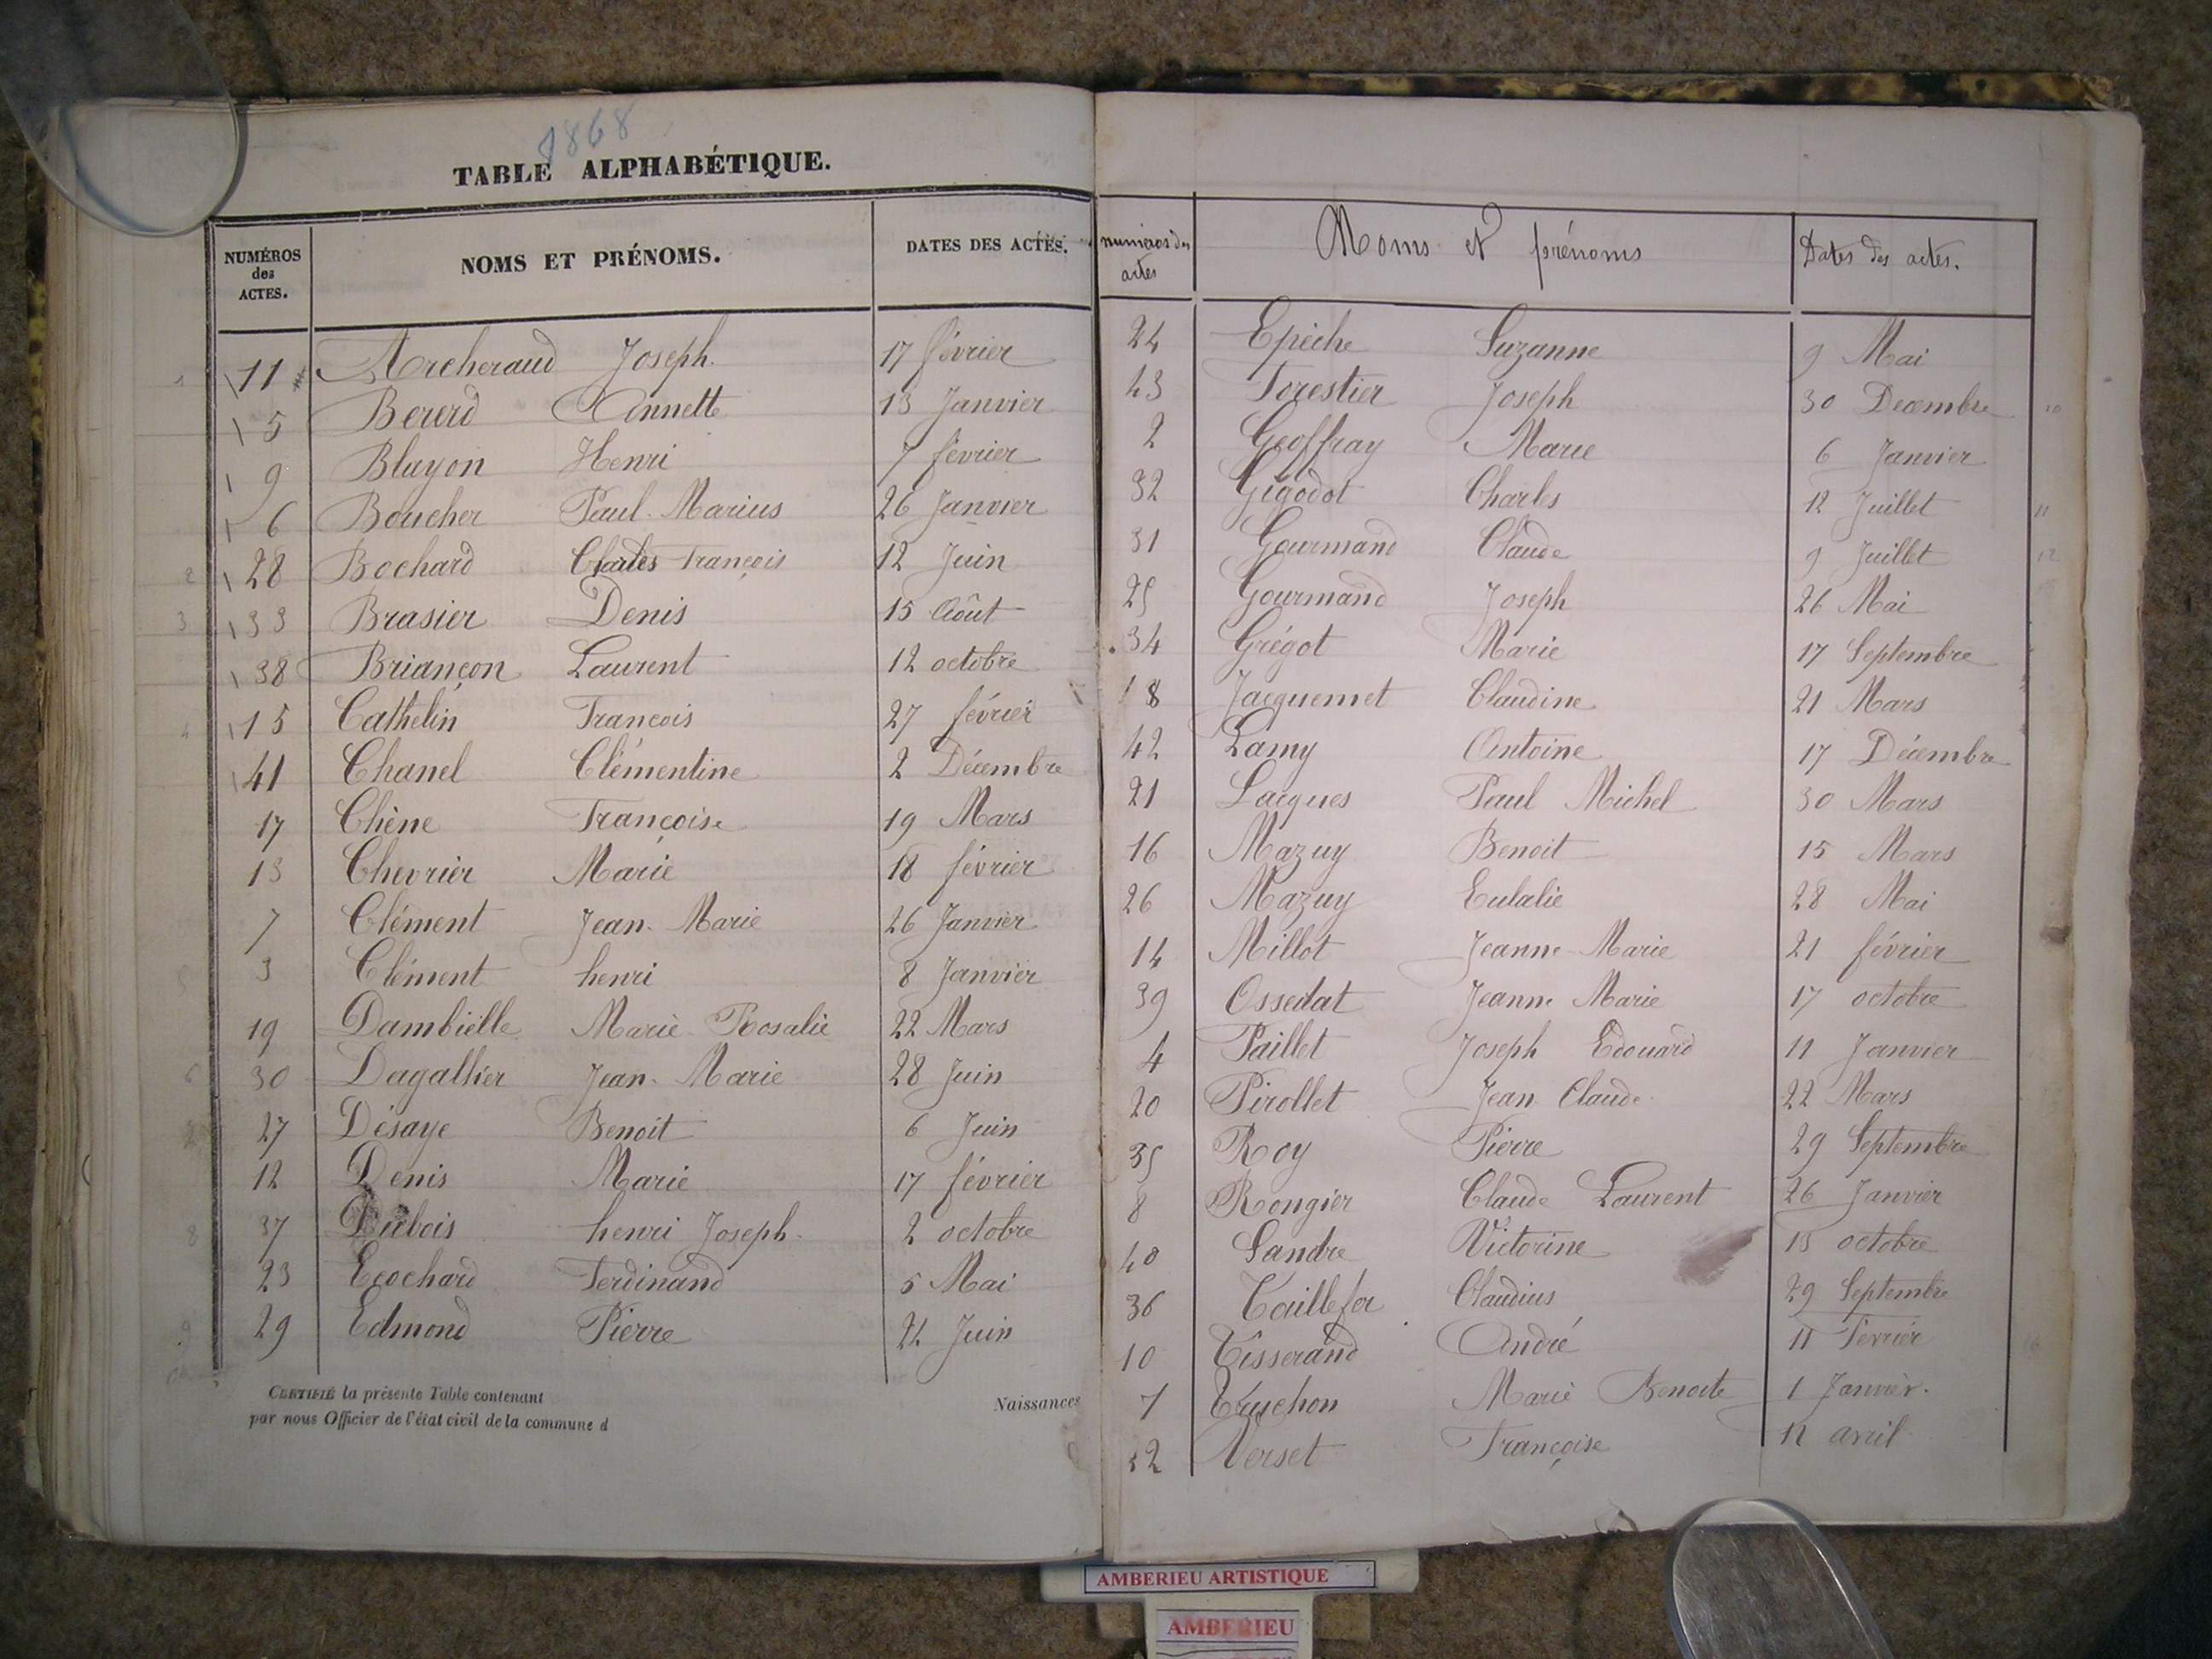 1868
TABLE ALPHABÉTIQUE.
NUMÉROS des ACTES. NOMS ET PRÉNOMS. DATES DES ACTES.
11 Archeraud Joseph 17 février
5 Bererd Annette 13 Janvier
9 Bluyon Henri 7 février
6 Boucher Paul Marius 26 Janvier
28 Bochard Charles François 12 Juin
33 Brasier Denis 15 Août
38 Briançon Laurent 12 octobre
15 Cathelin François 27 février
41 Chanel Clémentine 2 Décembre
17 Chêne Françoise 19 Mars
13 Chevrier Marie 18 février
7 Clément Jean Marie 26 Janvier
3 Clément henri 8 Janvier
19 Dambielle Marie Rosalie 22 Mars
30 Dagallier Jean Marie 28 Juin
27 Désaye Benoit 6 Juin
12 Denis Marie 17 février
37 Dubois henri Joseph 2 octobre
23 Ecochard Ferdinand 5 Mai
29 Edmond Pierre Juin
CERTIFIÉ la présente Table contenant Naissances
par nous Officier de l'état civil de la commune d
numéros des actes Noms et prénoms Dates des actes.
24 Epèche Suzanne 9 Mai
43 Forestier Joseph 30 Decembre
2 Geoffray Marie 6 Janvier
32 Gigodot Charles 12 Juillet
31 Gourmand Claude 9 Juillet
25 Gourmand Joseph 26 Mai
34 Grégot Marie 17 Septembre
18 Jacquemet Claudine 21 Mars
42 Lamy Antoine 17 Décembre
21 Lacques Paul Michel 30 Mars
16 Mazuy Benoit 15 Mars
26 Mazuy Eulalie 28 Mai
14 Millot Jeanne Marie 21 février
39 Ossedat Jeanne Marie 17 octobre
4 Paillet Joseph Edouard 11 Janvier
20 Pirollet Jean Claude 22 Mars
35 Roy Pierre 29 Septembre
8 Rongier Claude Laurent 26 Janvier
40 Sandre Victorine octobre
36 Taillefer Claudius 29 Septembre
10 Tisserand André 11 Février
1 Truchon Marie Benoite 1 Janvier.
22 Verset Françoise 12 avril
AMBERIEU ARTISTIQUE
AMBERIEU